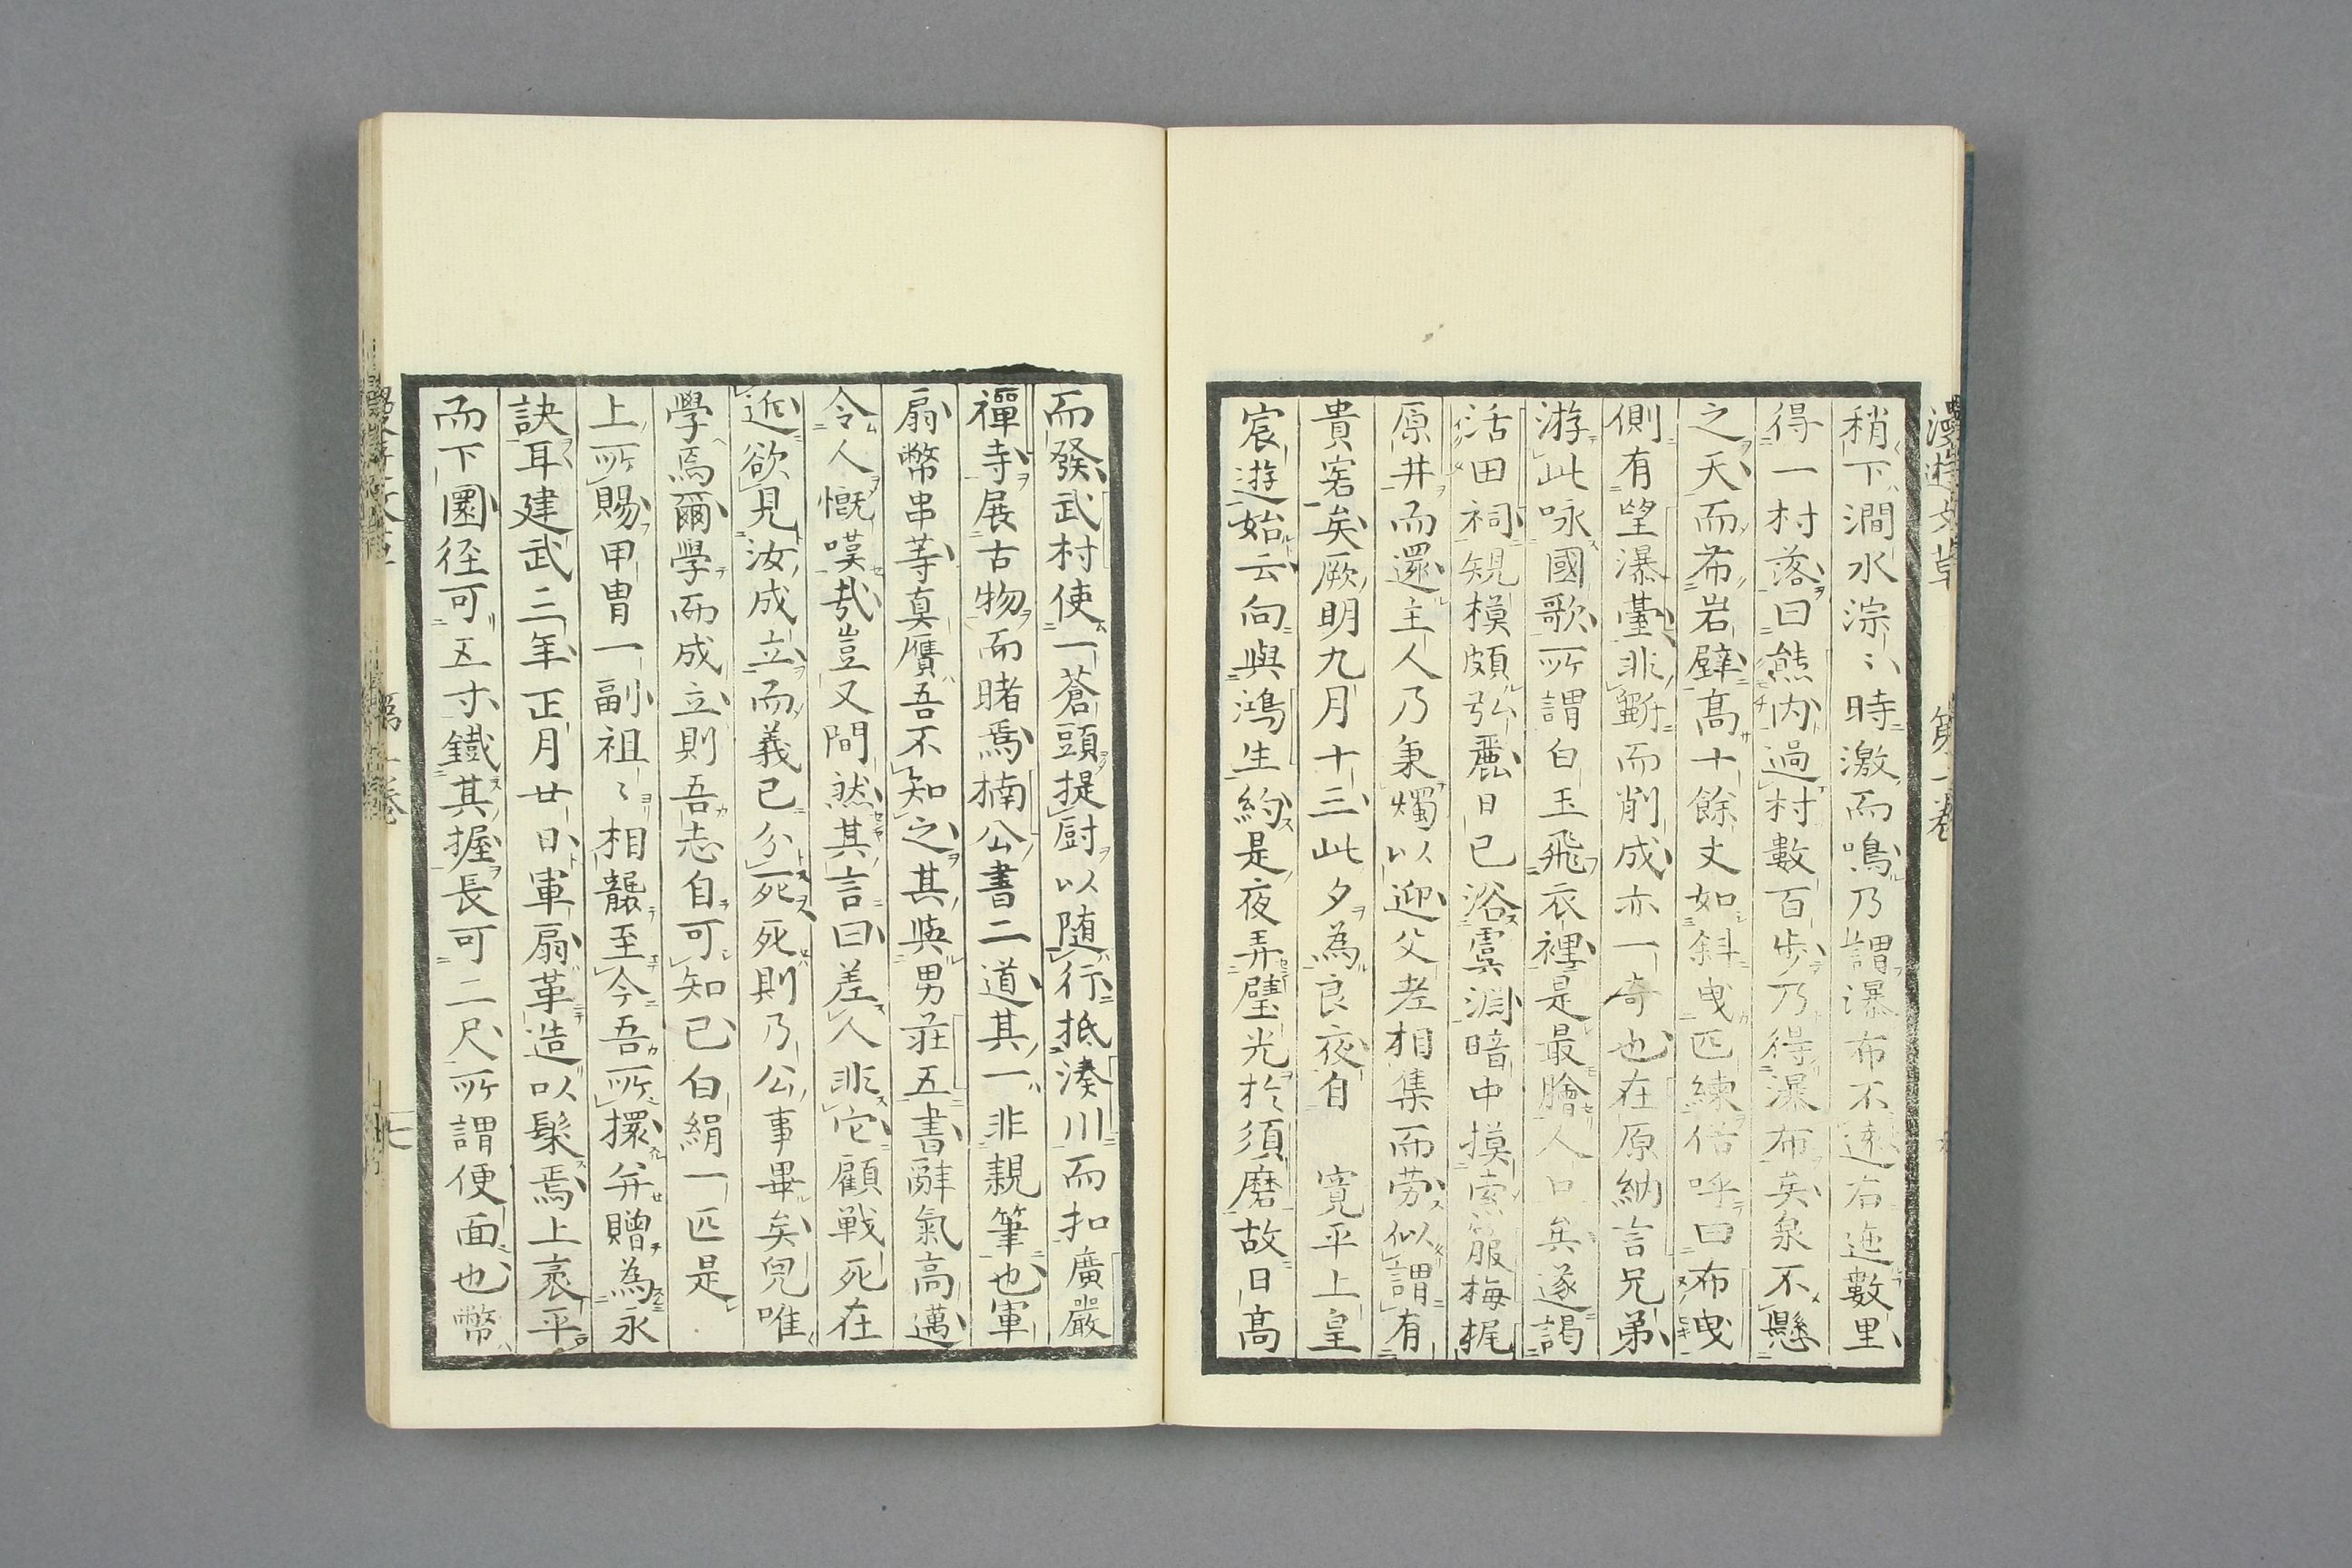 漫遊文草 第一卷
稍下澗水淙〻時激而鳴乃謂瀑布不遠右迤數里
得一村落曰熊内過村數百步乃得瀑布矣泉不懸
之天而希岩壁高十餘丈如斜曳匹練俗呼曰布曳
側有望瀑臺非斲而削成亦一奇也在原納言兄弟
游此咏國歌所謂白玉飛衣裡是最膾人口矣遂謁
活田祠規模頗弘麗日已浴虞淵暗中摸索箙梅梶
原井而還主人乃秉燭以迎父老相集而勞似謂有
貴客矣厥明九月十三此夕為良夜自 寛平上皇
宸遊始云向與鴻生約是夜弄璧光於須磨故日高
而發武村使一蒼頭提厨以随行抵湊川而扣廣嚴
禪寺展古物而睹焉楠公書二道其一非親筆也軍
扇幣串等真贋吾不知之其與男莊五書辭氣高邁
令人慨嘆哉豈又間然其言曰差人非它顧戰死在
近欲見汝成立而義已分死死則乃公事畢矣兒唯
學焉爾學而成立則吾志自可知已白絹一匹是
上所賜甲冑一副祖〻相襲至今吾所擐并贈為永
訣耳建武三年正月廿日軍扇革造以髹焉上袤平
而下圜径可五寸鐵其握長可二尺所謂便面也幣